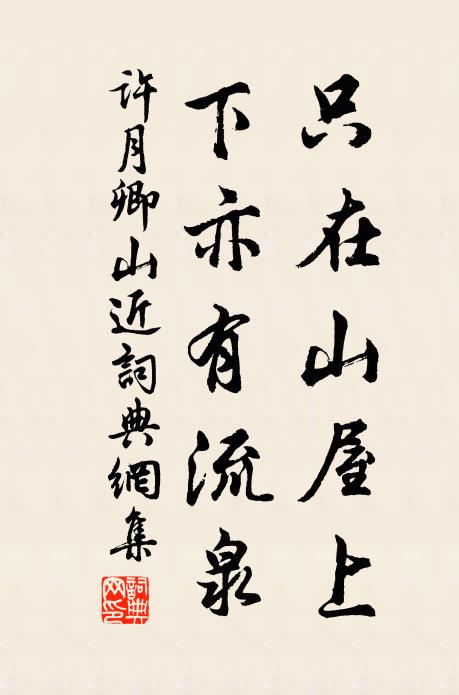 只在山屋上
下亦有流泉
許月卿山近詞典網集
詞典
网印